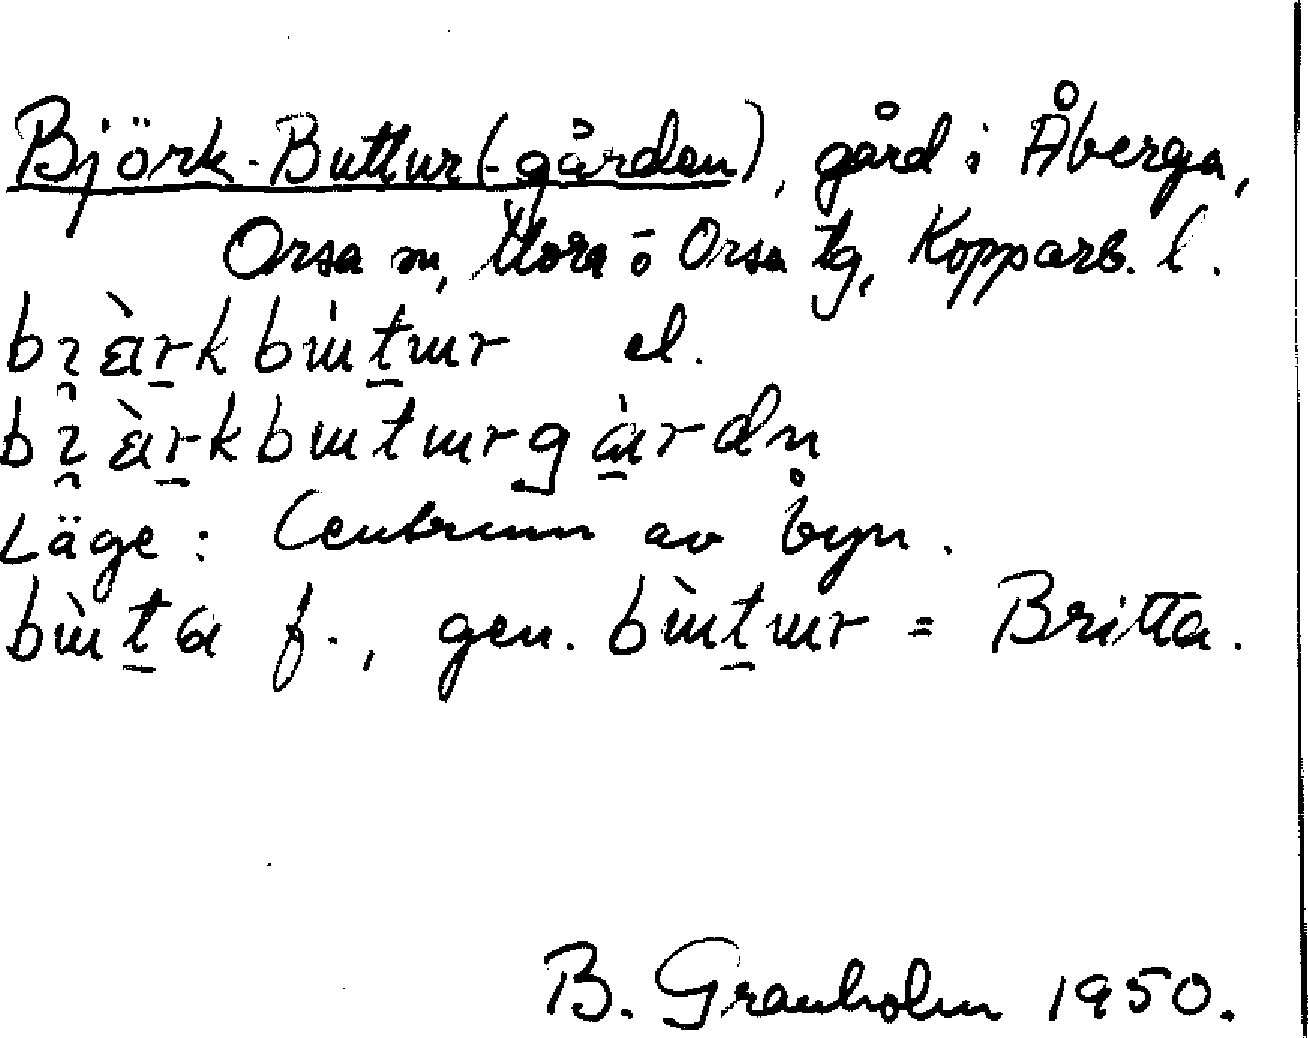 Björk-Buttur(-gården), gård i Åberga,
Orsa sn, Mora o Orsa tg, Kopparb. l.
el.
Läge: Centrum av byn.
f., gen. = Britta.
B. Granholm 1950.